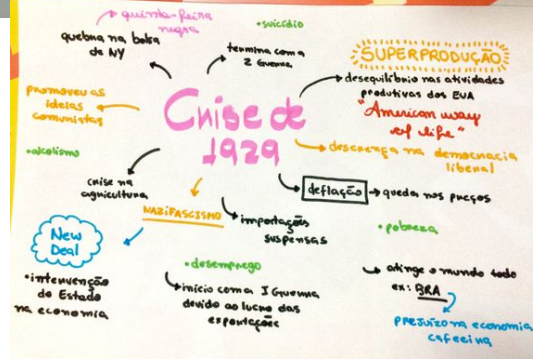 quinta-feira
negra
quebra na bolsa
de NY
•suicídio
termina com a
2 Guerra.
SUPERPRODUÇÃO
desequilíbrio nas atividades
produtivas dos EUA
"American way
of life"
promoveu as
ideias
comunistas
Crise de
1929
descrença na democracia
liberal
•alcolismo
crise na
agricultura
NAZIFASCISMO
deflação
queda nos preços
importações
suspensas
•pobreza
New
Deal
•intervenção
do Estado
na economia
•desemprego
início com a I Guerra
devido ao lucro das
exportações
atinge o mundo todo
ex: BRA
prejuízo na economia
cafeeira